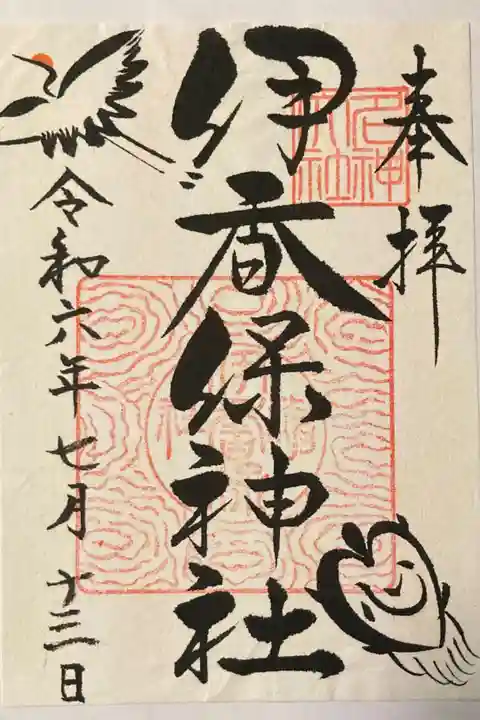 奉拝
伊香保神社
令和六年七月十三日